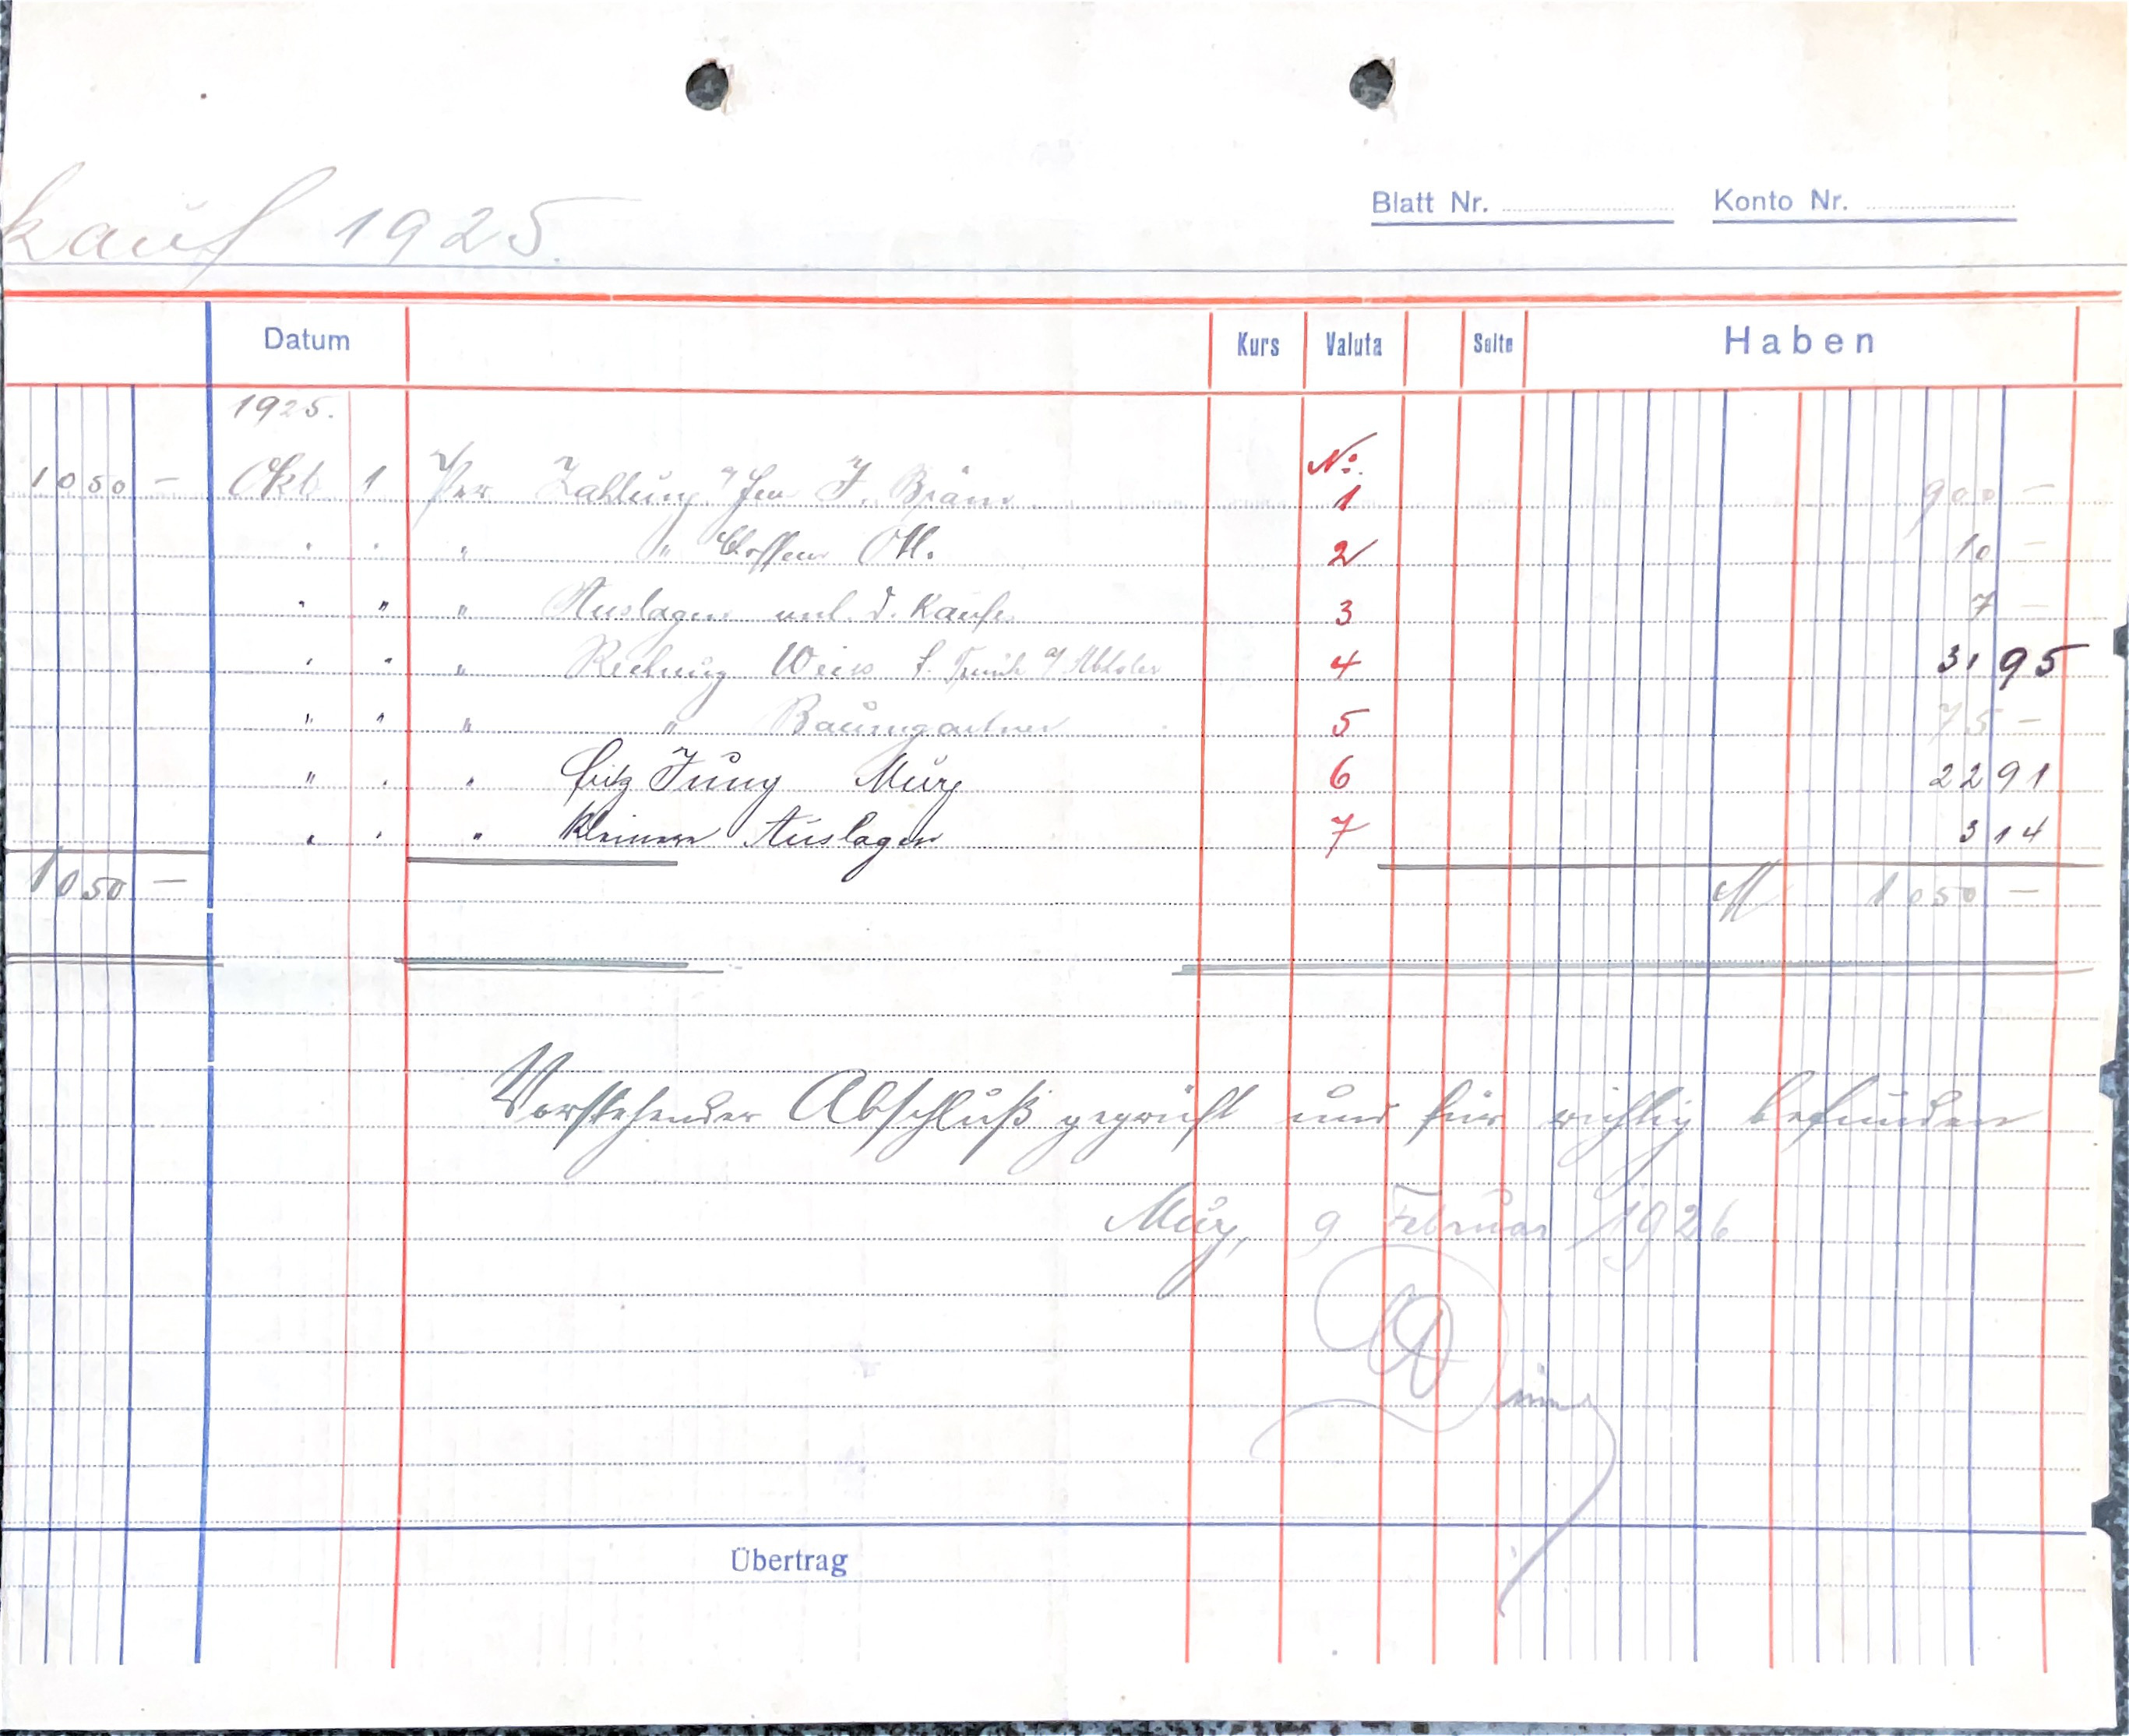 kauf 1925.
Blatt Nr. Konto Nr.
Datum Kurs Valuta Seite Haben
1925.
No.
1050 — Okt 1 Per Zahlung J. 1 900 —
" " " " Ott. 2 10 —
" " " Auslagen anl. d. Kaufes 3 7 —
" " " Rechnung Weiss f. 4 31 95
" " " " Baumgartner 5 75 —
" " " Fritz Jung Murg 6 22 91
" " " kleinere Auslagen 7 3 14
1050 — M 1050 —
Vorstehender Abschluß geprüft und für richtig befunden
Murg, 9 Februar 1926
Übertrag